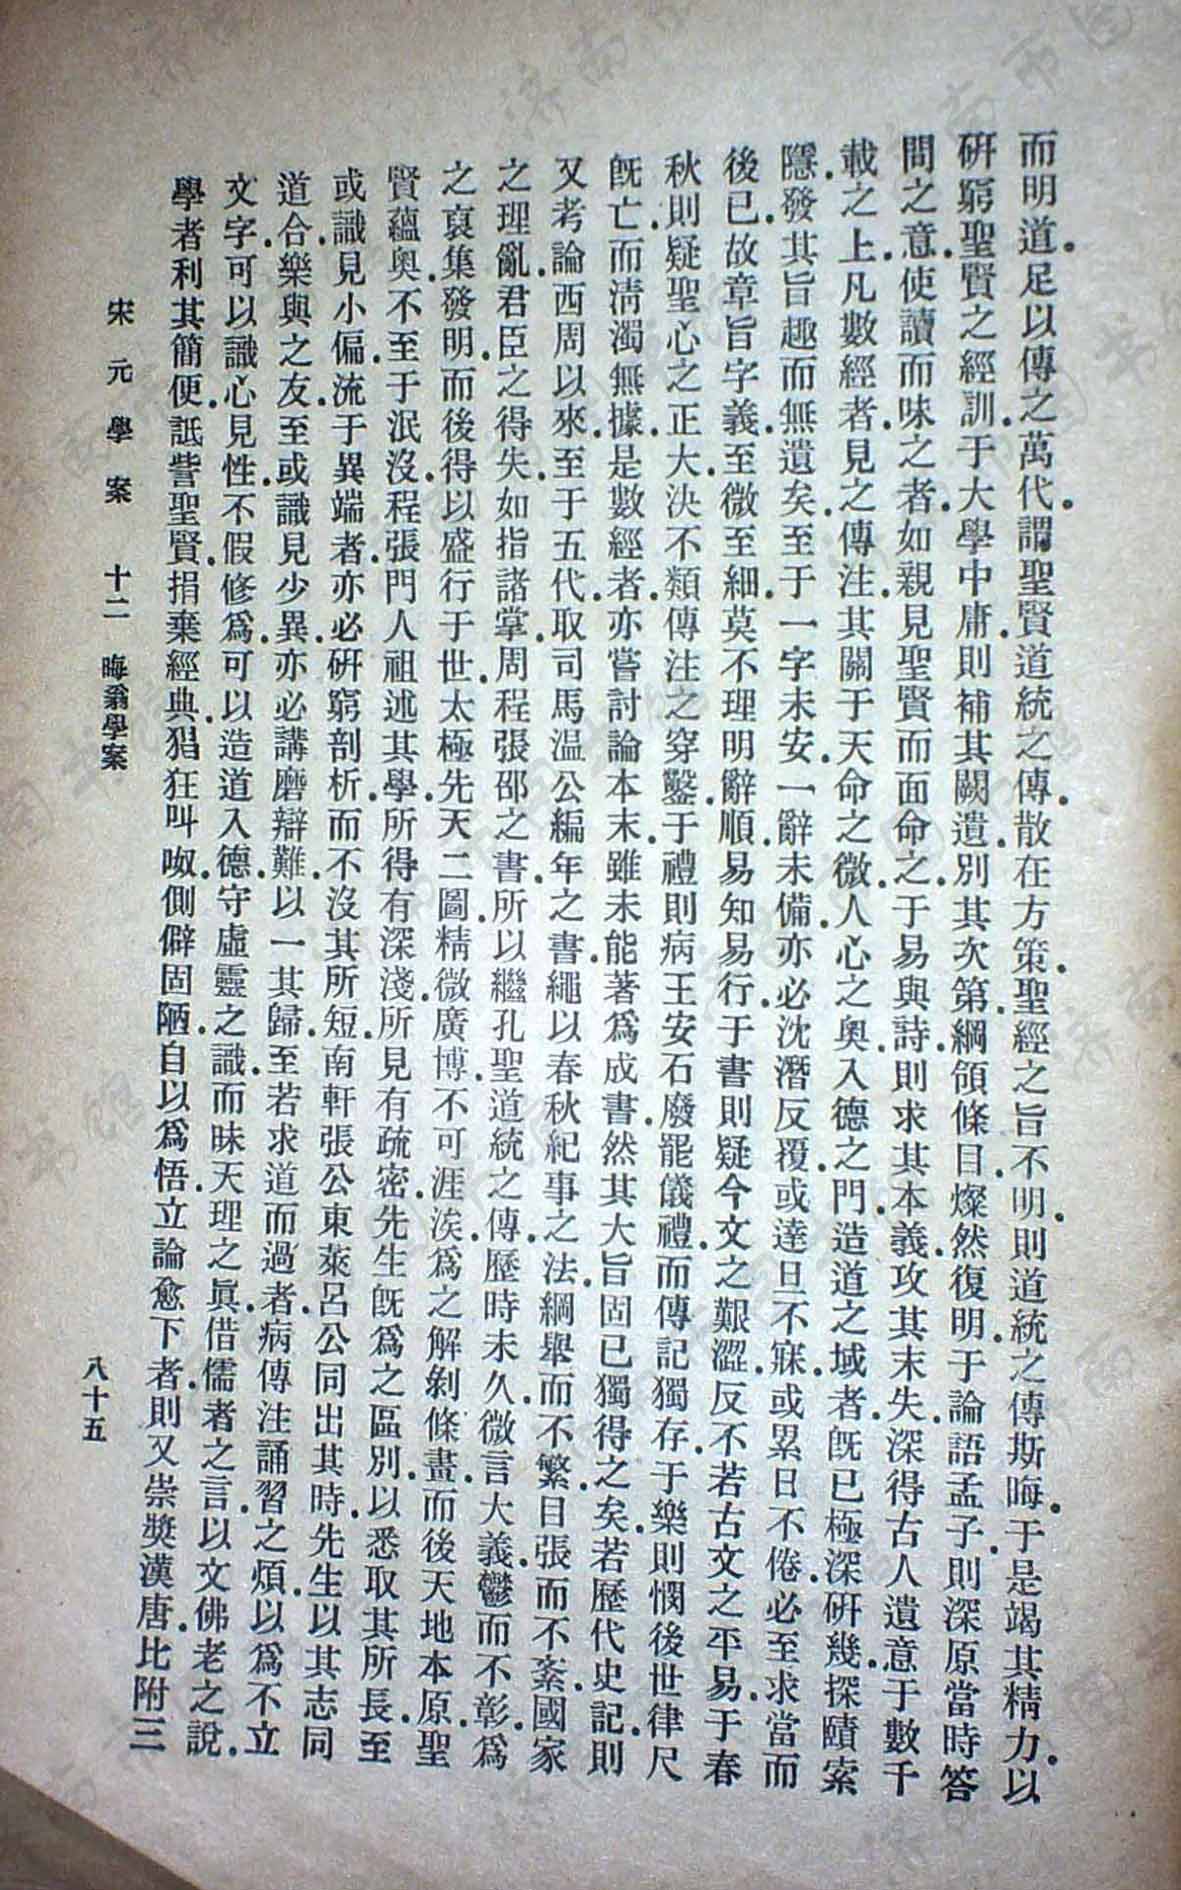 而明道。足以傳之萬代。謂聖賢道統之傳。散在方策。聖經之旨不明。則道統之傳斯晦。于是竭其精力。以
研窮聖賢之經訓。于大學中庸。則補其闕遺。別其次第。綱領條目。燦然復明。于論語孟子。則深原當時答
問之意。使讀而味之者。如親見聖賢而面命之。于易與詩。則求其本義。攻其末失。深得古人遺意于數千
載之上。凡數經者。見之傳注。其關于天命之微。人心之奧。入德之門。造道之域者。旣已極深研幾。探賾索
隱。發其旨趣而無遺矣。至于一字未安。一辭未備。亦必沈潛反覆。或達旦不寐。或累日不倦。必至求當而
後已。故章旨字義。至微至細。莫不理明辭順。易知易行。于書則疑今文之艱澀。反不若古文之平易。于春
秋則疑聖心之正大。決不類傳注之穿鑿。于禮則病王安石廢罷儀禮。而傳記獨存。于樂則憫後世律尺
旣亡。而清濁無據。是數經者。亦嘗討論本末。雖未能著爲成書。然其大旨固已獨得之矣。若歷代史記。則
又考論西周以來。至于五代。取司馬温公編年之書。繩以春秋紀事之法。綱舉而不繁。目張而不紊。國家
之理亂。君臣之得失。如指諸掌。周程張邵之書。所以繼孔聖道統之傳。歷時未久。微言大義。鬱而不彰。爲
之裒集發明。而後得以盛行于世。太極先天二圖。精微廣博。不可涯涘。爲之解剝條畫。而後天地本原。聖
賢蘊奧。不至于泯沒。程張門人。祖述其學。所得有深淺。所見有疏密。先生旣爲之區別。以悉取其所長。至
或識見小偏。流于異端者。亦必研窮剖析。而不沒其所短。南軒張公東萊呂公同出其時。先生以其志同
道合。樂與之友。至或識見少異。亦必講磨辯難。以一其歸。至若求道而過者。病傳注誦習之煩。以爲不立
文字。可以識心見性。不假修爲。可以造道入德。守虛靈之識。而昧天理之眞。借儒者之言。以文佛老之說。
學者利其簡便。詆訾聖賢。捐棄經典。猖狂叫呶。側僻固陋。自以爲悟。立論愈下者。則又崇獎漢唐。比附三
宋元學案 十二 晦翁學案
八十五